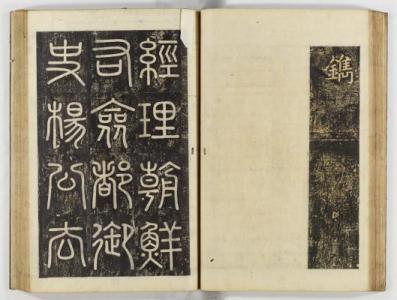 鐫
經理朝鮮
右僉都御
史楊公去